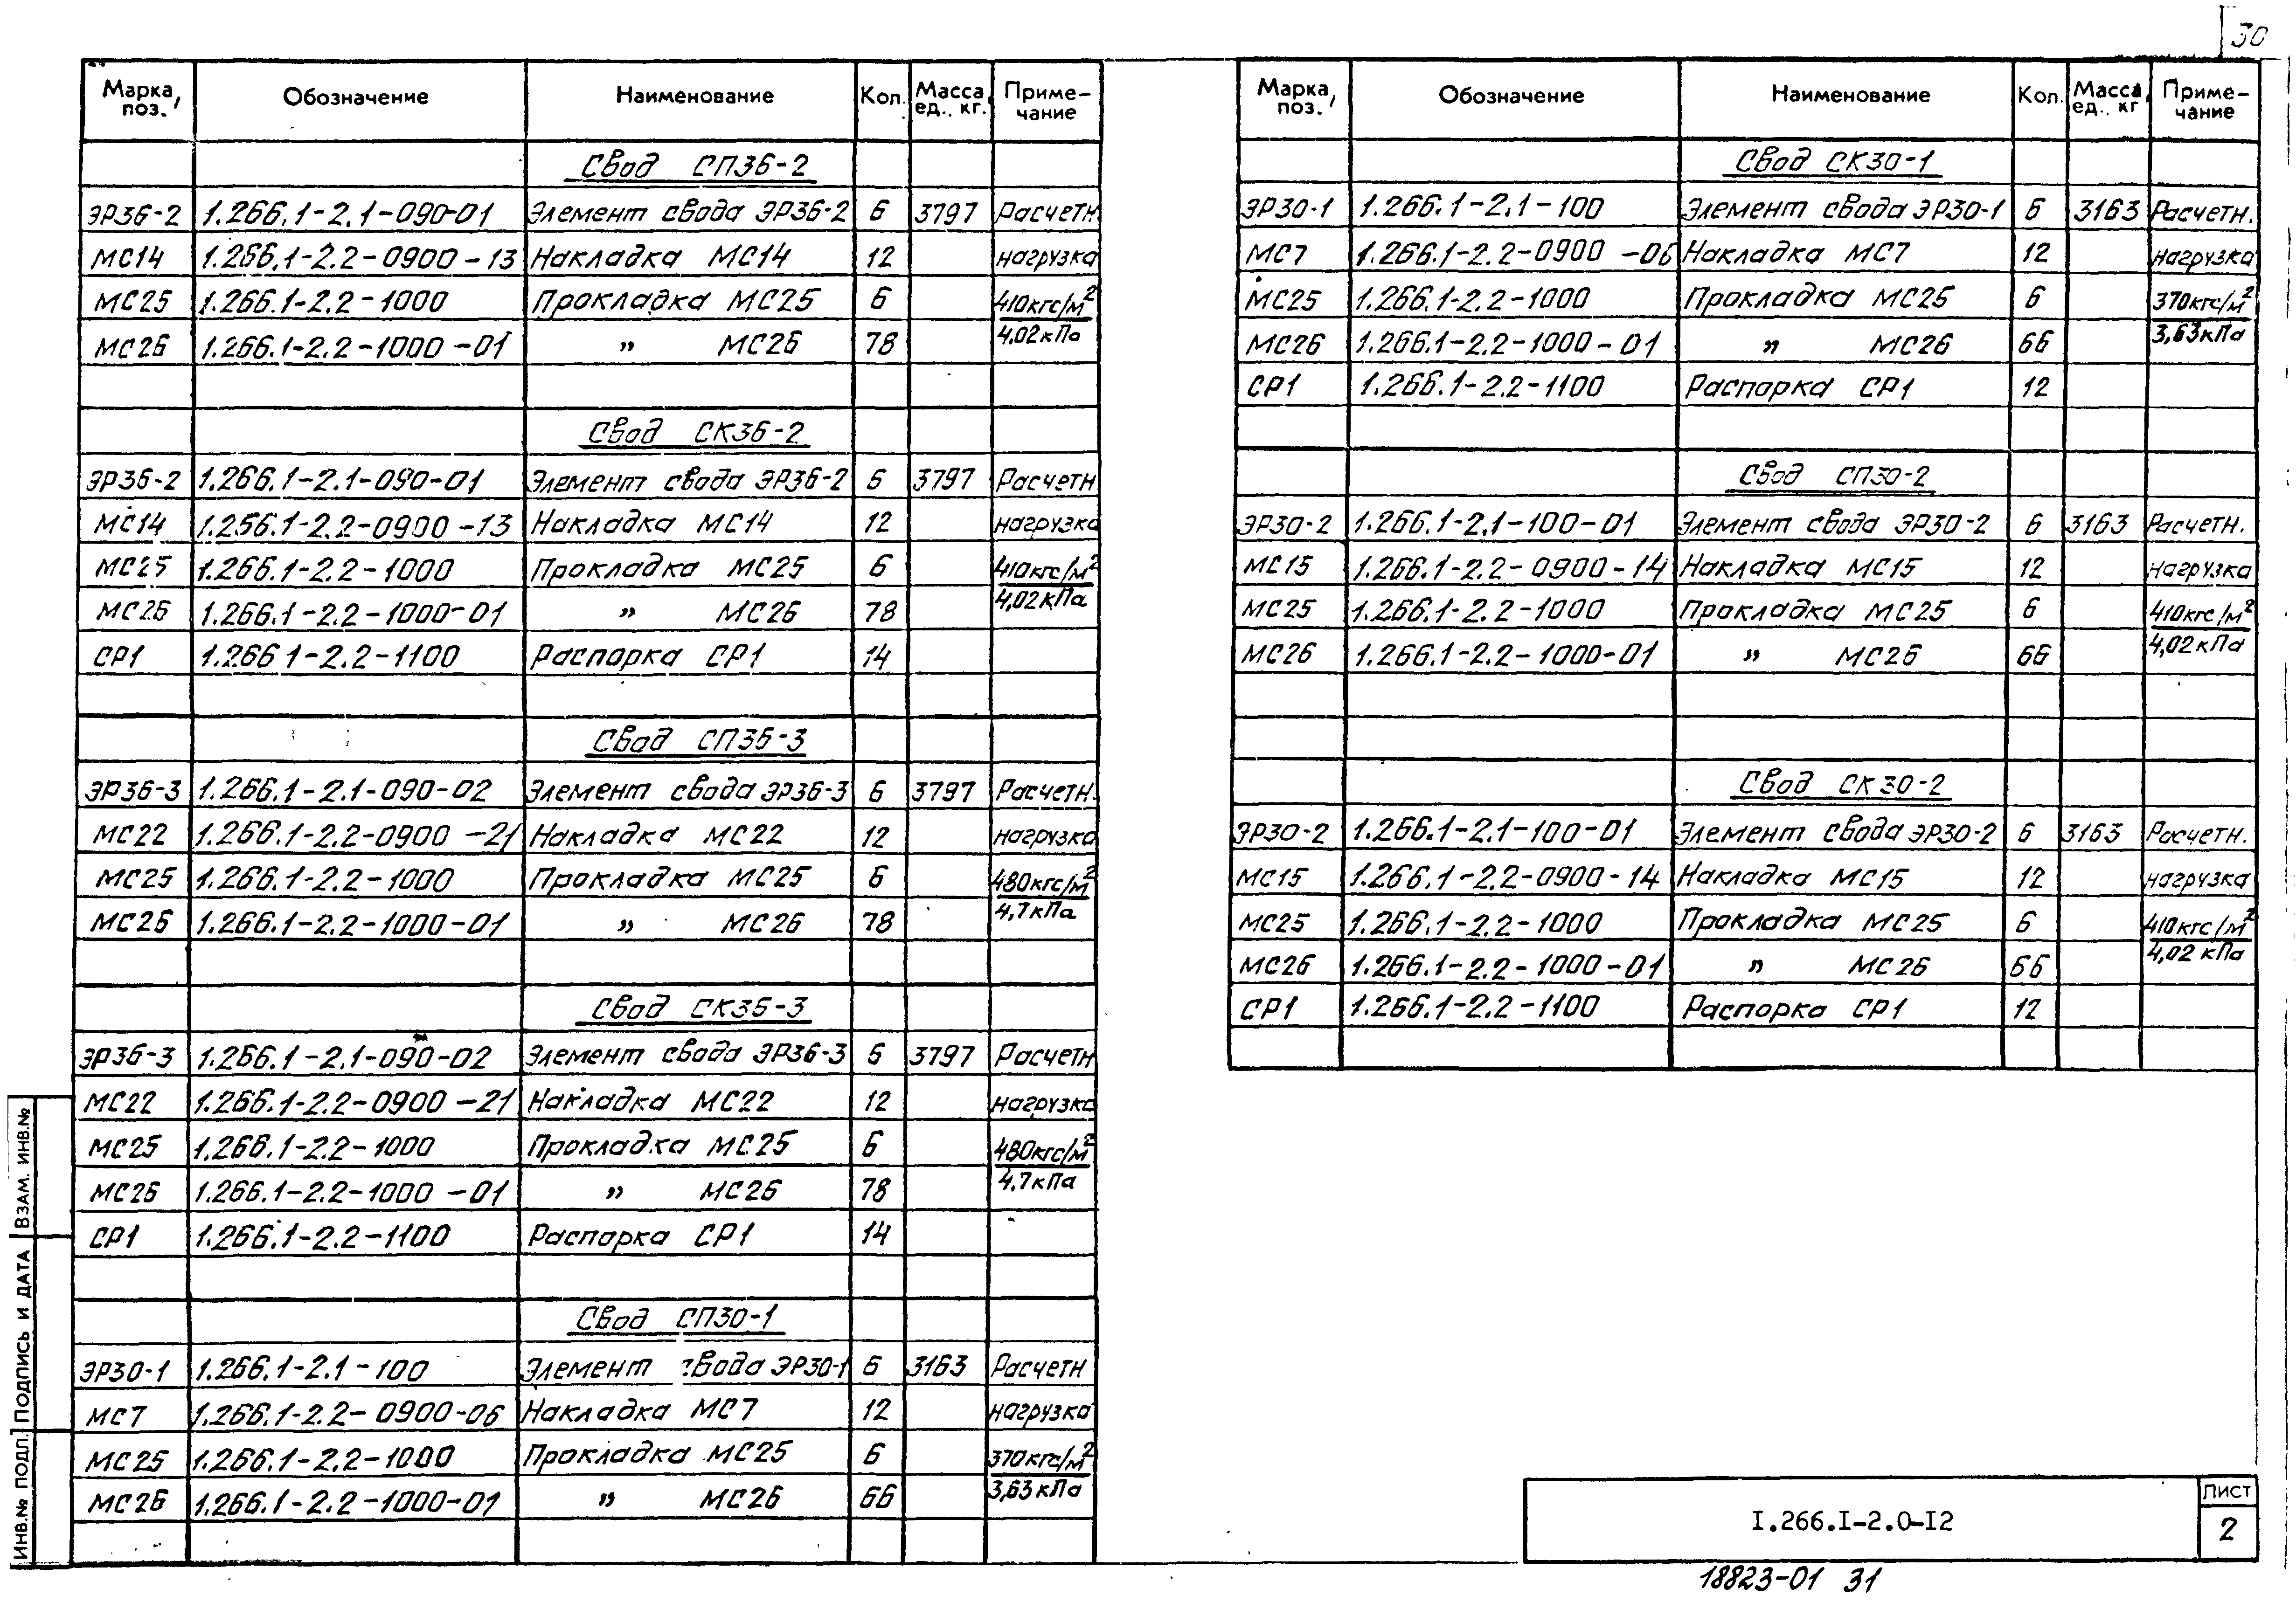 30
Марка, поз. Обозначение Наименование Кол. Масса ед., кг. Примечание
Свод СП36-2
ЭР36-2 1.266.1-2.1-090-01 Элемент свода ЭР36-2 6 3797 Расчетн.
МС14 1.266.1-2.2-0900-13 Накладка МС14 12 нагрузка
МС25 1.266.1-2.2-1000 Прокладка МС25 6 410кгс/м²
МС26 1.266.1-2.2-1000-01 „ МС26 78 4,02кПа
Свод СК36-2
ЭР36-2 1.266.1-2.1-090-01 Элемент свода ЭР36-2 6 3797 Расчетн
МС14 1.256.1-2.2-0900-13 Накладка МС14 12 нагрузка
МС25 1.266.1-2.2-1000 Прокладка МС25 6 410кгс/м²
МС26 1.266.1-2.2-1000-01 „ МС26 78 4,02кПа
СР1 1.266 1-2.2-1100 Распорка СР1 14
Свод СП36-3
ЭР36-3 1.266.1-2.1-090-02 Элемент свода ЭР36-3 6 3797 Расчетн.
МС22 1.266.1-2.2-0900-21 Накладка МС22 12 нагрузка
МС25 1.266.1-2.2-1000 Прокладка МС25 6 480кгс/м²
МС26 1.266.1-2.2-1000-01 „ МС26 78 4,7кПа
Свод СК36-3
ЭР36-3 1.266.1-2.1-090-02 Элемент свода ЭР36-3 6 3797 Расчетн
МС22 1.266.1-2.2-0900-21 Накладка МС22 12 нагрузка
МС25 1.266.1-2.2-1000 Прокладка МС25 6 480кгс/м²
МС26 1.266.1-2.2-1000-01 „ МС26 78 4,7кПа
СР1 1.266.1-2.2-1100 Распорка СР1 14
Свод СП30-1
ЭР30-1 1.266.1-2.1-100 Элемент свода ЭР30-1 6 3163 Расчетн
МС7 1.266.1-2.2-0900-06 Накладка МС7 12 нагрузка
МС25 1.266.1-2.2-1000 Прокладка МС25 6 370кгс/м²
МС26 1.266.1-2.2-1000-01 „ МС26 66 3,63кПа
Марка, поз. Обозначение Наименование Кол. Масса, ед., кг Примечание
Свод СК30-1
ЭР30-1 1.266.1-2.1-100 Элемент свода ЭР30-1 6 3163 Расчетн.
МС7 1.266.1-2.2-0900-06 Накладка МС7 12 нагрузка
МС25 1.266.1-2.2-1000 Прокладка МС25 6 370кгс/м²
МС26 1.266.1-2.2-1000-01 „ МС26 66 3,63кПа
СР1 1.266.1-2.2-1100 Распорка СР1 12
Свод СП30-2
ЭР30-2 1.266.1-2.1-100-01 Элемент свода ЭР30-2 6 3163 Расчетн.
МС15 1.266.1-2.2-0900-14 Накладка МС15 12 нагрузка
МС25 1.266.1-2.2-1000 Прокладка МС25 6 410кгс/м²
МС26 1.266.1-2.2-1000-01 „ МС26 66 4,02кПа
Свод СК30-2
ЭР30-2 1.266.1-2.1-100-01 Элемент свода ЭР30-2 6 3163 Расчетн.
МС15 1.266.1-2.2-0900-14 Накладка МС15 12 нагрузка
МС25 1.266.1-2.2-1000 Прокладка МС25 6 410кгс/м²
МС26 1.266.1-2.2-1000-01 „ МС26 66 4,02 кПа
СР1 1.266.1-2.2-1100 Распорка СР1 12
ИНВ.№ ПОДЛ. ПОДПИСЬ И ДАТА ВЗАМ. ИНВ.№
I.266.I-2.0-I2
Лист
2
18823-01 31